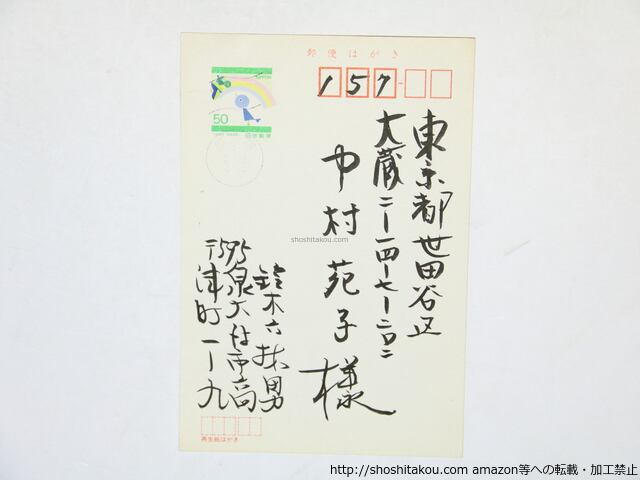 郵便はがき
157-
NIPPON
50
日本郵便
東京都世田谷区
大蔵二ー一四ー七ー二〇二
中村苑子様
鈴木六林男
〒595泉大津市高
津町一ー九
再生紙はがき
shoshitakou.com
http://shoshitakou.com amazon等への転載・加工禁止